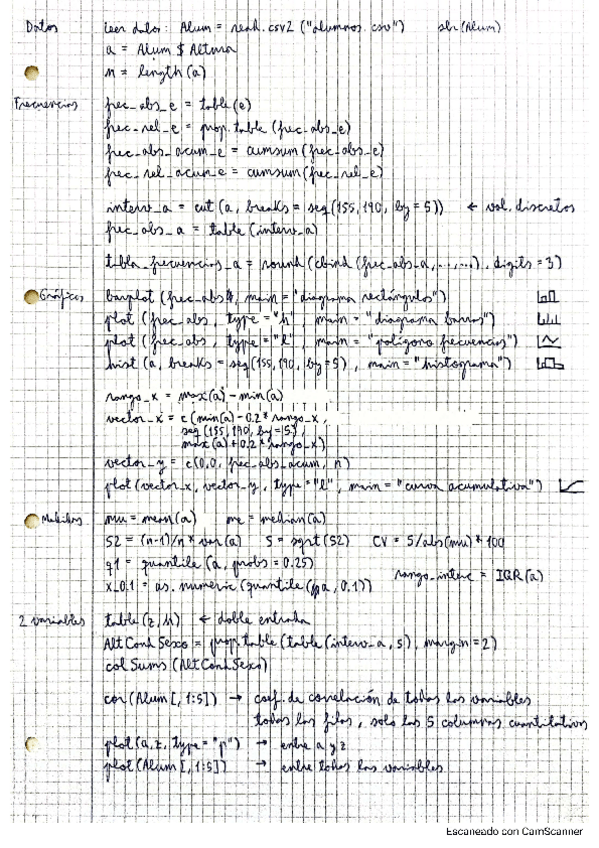 Datos leer datos: Alum = read.csv2 ("alumnos.csv") str(Alum)
a = Alum $ Altura
n = length(a)
Frecuencias frec_abs_e = table(e)
frec_rel_e = prop.table (frec_abs_e)
frec_abs_acum_e = cumsum(frec_abs_e)
frec_rel_acum_e = cumsum(frec_rel_e)
interv_a = cut (a, breaks = seq(155,190, by = 5)) ← val. discretos
frec_abs_a = table (interv_a)
tabla_frecuencias_a = round (cbind (frec_abs_a, ..., ...), digits = 3)
Gráficos barplot (frec_abs, main = "diagrama rectángulos")
plot (frec_abs, type = "h", main = "diagrama barras")
plot (frec_abs, type = "l", main = "polígono frecuencias")
hist (a, breaks = seq(155,190, by=5), main = "histograma")
rango_x = max(a) - min(a)
vector_x = c (min(a) - 0.2 * rango_x,
seq (155, 190, by = 5),
max (a) + 0.2 * rango_x)
vector_y = c(0.0, frec_abs_acum, n)
plot (vector_x, vector_y, type = "l", main = "curva acumulativa")
Medidas mu = mean(a) me = median(a)
S2 = (n-1)/n * var(a) S = sqrt(S2) CV = S/abs(mu) * 100
q1 = quantile (a, probs = 0.25)
x_0.1 = as.numeric (quantile (a, 0.1)) rango_interc = IQR(a)
2 variables table (z, u) ← doble entrada
AltCondSexo = prop.table (table (interv_a, s), margin = 2)
colSums (AltCondSexo)
cor (Alum [, 1:5]) → coef. de correlación de todas las variables
todas las filas, solo las 5 columnas cuantitativas
plot (a, z, type = "p") → entre a y z
plot (Alum [, 1:5]) → entre todas las variables
Escaneado con CamScanner